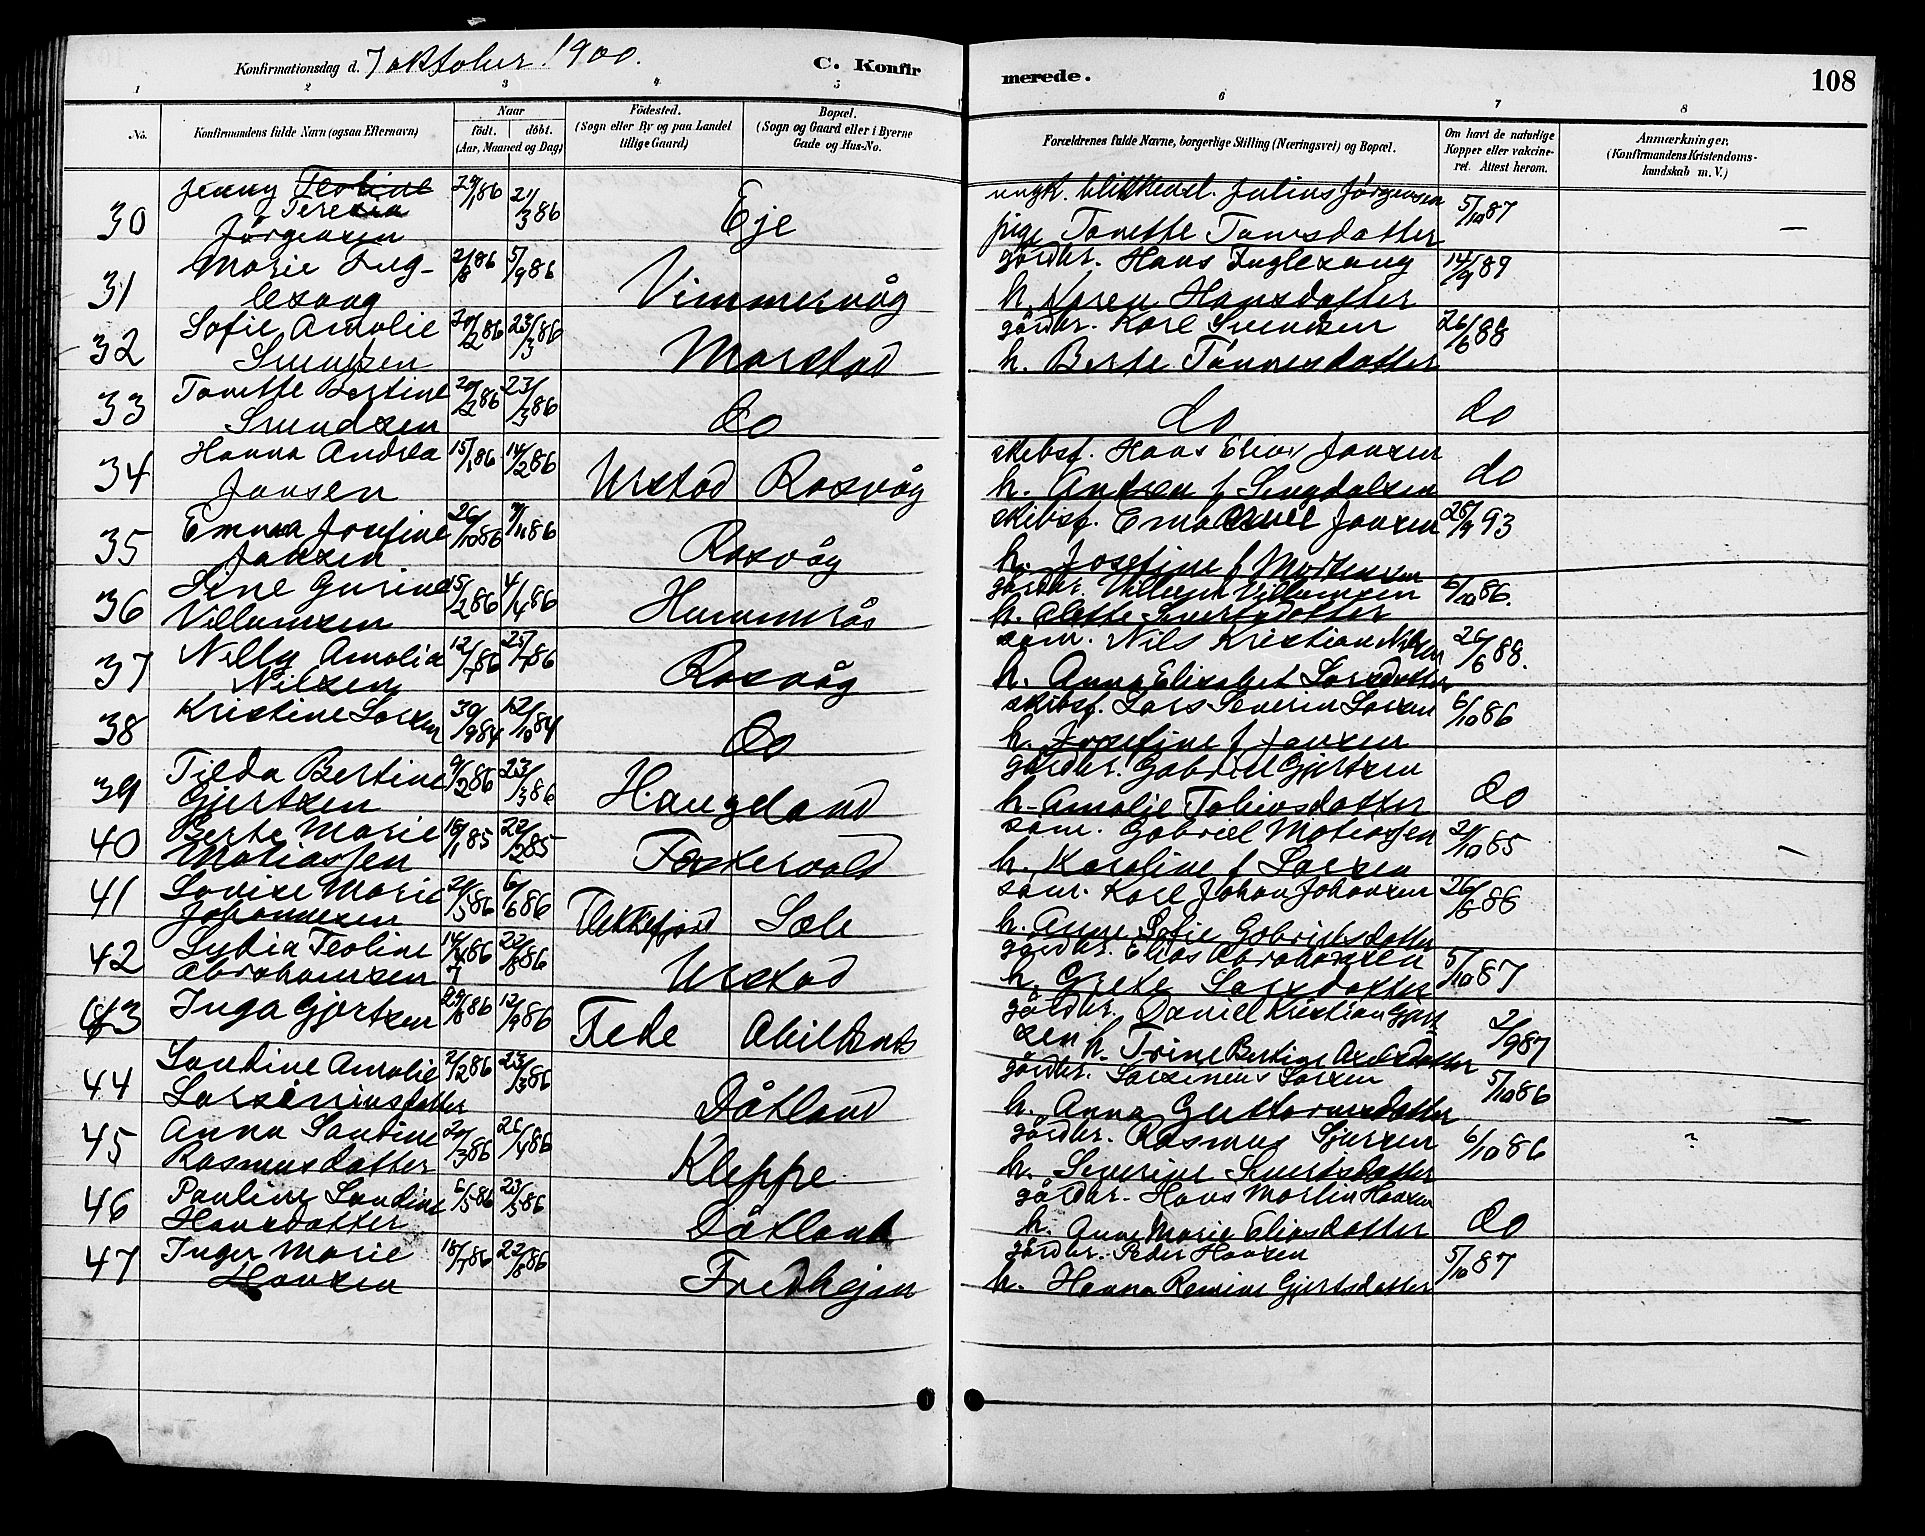 Konfirmationsdag d. 7 oktober 1900.
C. Konfirmerede.
108
1 2 3 4 5 6 7 8
No.
Konfirmandens fulde Navn (ogsaa Efternavn)
Naar
født. døbt.
(Aar, Maaned og Dag)
Fødested.
(Sogn eller By og paa Landet
tillige Gaard)
Bopæl.
(Sogn og Gaard eller i Byerne
Gade og Hus-No.
Forældrenes fulde Navne, borgerlige Stilling (Næringsvei) og Bopæl.
Om havt de naturlige
Kopper eller vakcine-
ret. Attest herom.
Anmærkninger.
(Konfirmandens Kristendoms-
kundskab m. V.)
30 Jenny Teoline Terexia Jørgensen 21/3 86 Eje
ungk. Julius Jørgensen 5/10 87
pige Tonette Tomsdatter
31 Marie Fuglesang 2/8 86 5/9 86 Vimmersvåg
gårdbr. Hans Fuglesang 14/9 89
h. Hansdatter
32 Sofie Amalie Svendsen 20/2 86 23/3 86 Marstad
gårdbr. Karl Svendsen 26/6 88
h. Berte Tønnesdatter
33 Tonette Bertine Svendsen 20/2 86 23/3 86 do
do do
34 Hanna Andrea Jansen 15/1 86 14/2 86 Urstad Rasvåg
skibsf. Hans Jansen do
h. Andrea f Sengdalsen
35 Emma Josefine Jansen 26/10 86 Rasvåg
skibsf. Emanuel Jansen 25/9 93
h. Josefine f Mortensen
36 Sine Gurine Villumsen 15/2 86 4/4 86 Hummerås
gårdbr. Villum Villumsen 6/10 86.
h. Alette Sivertsdatter
37 Nilly Amalia Nilsen 12/7 86 25/7 86 Rasvåg
søm. Nils Kristian Nilsen 26/6 88.
h. Anna Elisabet Larsdatter
38 Kristine Larsen 30/9 84 12/10 84 do
skibsf. Lars Severin Larsen 6/10 86
h. Josefine f Jansen
39 Tilda Bertine Gjertsen 9/2 86 23/3 86 Haugeland
gårdbr. Gabriel Gjertsen do
h. Amalie Tobiasdatter
40 Berte Marie Matiassen 18/1 85 22/2 85
søm. Gabriel Matiassen 21/10 85
h. Karoline f Larsen
41 Lovise Marie Johannesen 6/6 86 Flekkefjord Sæle
søm. Karl Johan Johansen
h. Anne Sofie Gabrielsdatter
42 Lydia Teoline Abrahamsen 22/8 86 Urstad
gårdbr. Elias Abrahamsen 5/10 87
h. Grete Larsdatter
43 Inga Gjertsen 12/9 86 Fede
gårdbr. Daniel Kristian Gjert
sen h. Trine Bertine Axelsdatter 2/9 87
44 Sandine Amalie Larseniusdatter 2/2 86 23/3 86 Dåtland
gårdbr. Larsenius Larsen 5/10 86
h. Anna Guttormsdatter
45 Anna Sandine Rasmusdatter 20/3 86 26/4 86 Kleppe
gårdbr. Rasmus Sjursen 6/10 86
h. Severine Sivertsdatter
46 Pauline Sandine Hansdatter 6/5 86 23/5 86 Dåtland
gårdbr. Hans Martin Hansen do
h. Anne Marie Eliasdatter
47 Inger Marie Hansen 18/7 86 22/8 86 Fredhejm
gårdbr. Peder Hansen 5/10 87
h. Hanna Gjertsdatter